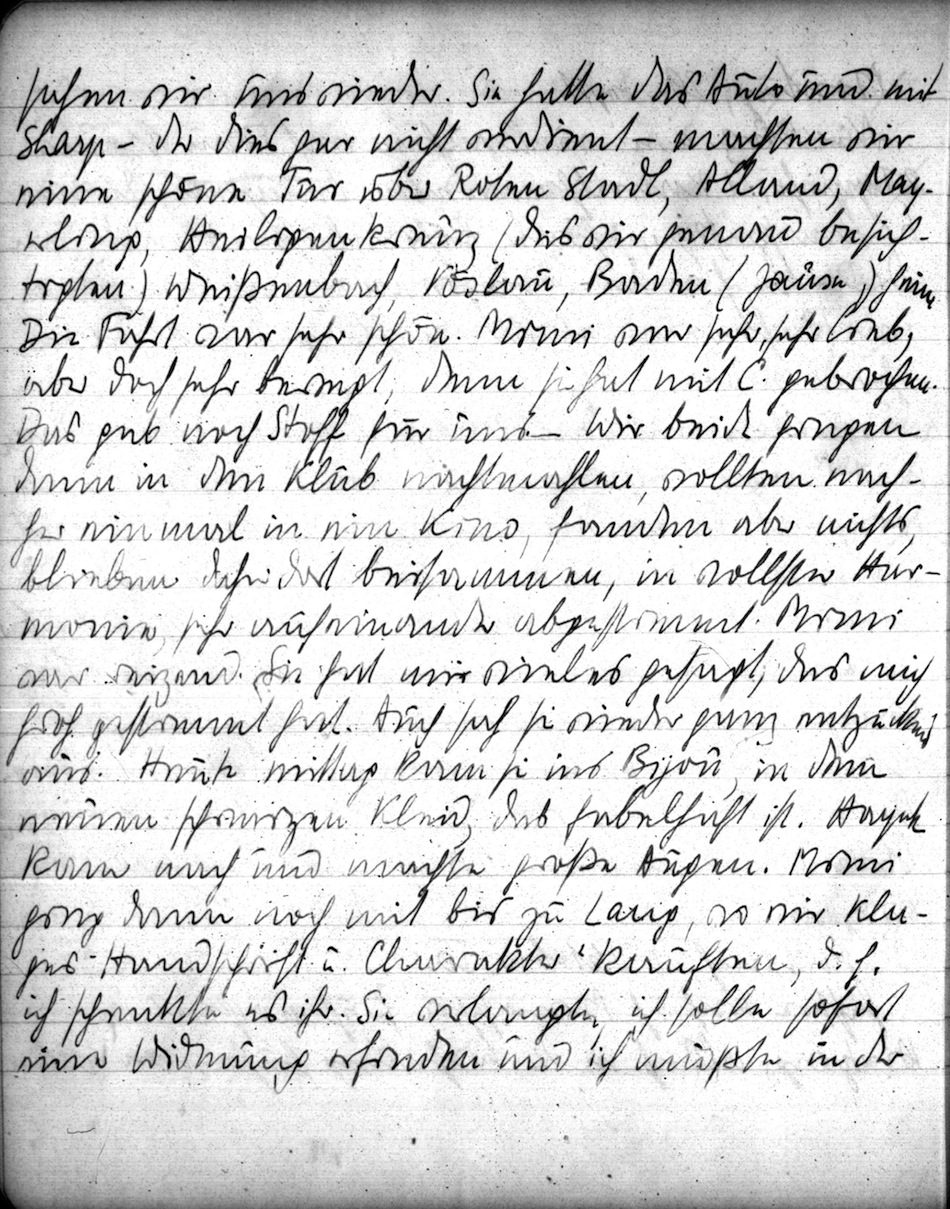 sahen wir uns wieder. Sie hatte das Auto und mit
Sharp – der dies gar nicht verdient – machten wir
eine schöne Tur über Roten Stadl, Alland, May-
erling, Heiligenkreuz (das wir genau besich-
tigten) Weißenbach, Vöslau, Baden (Jause) heim.
Die Fahrt war sehr schön. Mimi war sehr, sehr lieb,
aber doch sehr bewegt, denn sie hat mit C. gebrochen.
Das gab noch Stoff für uns – Wir beide gingen
dann in den Klub nachtmahlen, wollten nach-
her einmal in ein Kino, fanden aber nichts,
blieben daher dort beisammen, in vollster Har-
monie, sehr aufeinander abgestimmt. Mimi
war reizend. Sie hat mir vieles gesagt, das mich
froh gestimmt hat. Auch sah sie wieder ganz entzückend
aus. Heute mittag kam sie ins Bijou, in dem
neuen schwarzen Kleid, das fabelhaft ist. Hayek
kam auch und machte große Augen. Mimi
ging dann noch mit bis zu Lang, wo wir Kla-
ges "Handschrift u. Charakter" kauften, d. h.
ich schenkte es ihr. Sie verlangte, ich solle sofort
eine Widmung erfinden und ich mußte in der